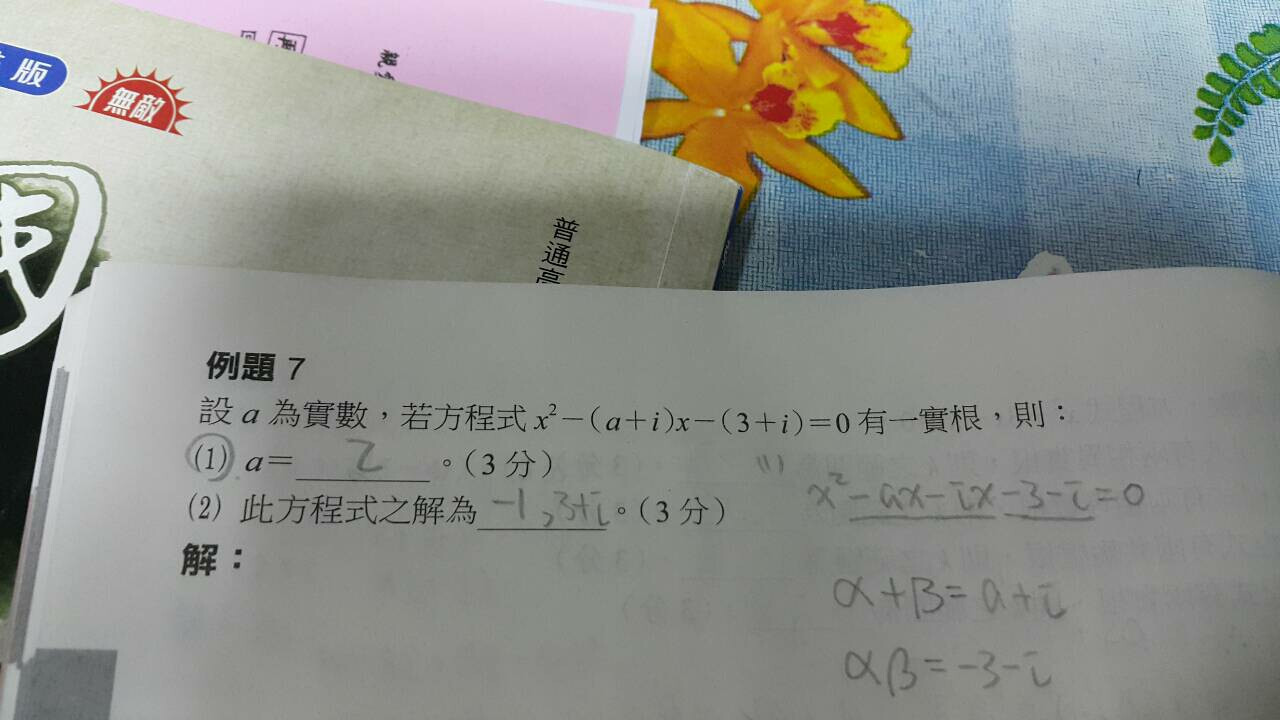 版
無敵
普通高
例題 7
設 a 為實數，若方程式 x²−(a+i)x−(3+i)=0 有一實根，則：
(1) a= 2 。(3 分)
(2) 此方程式之解為 -1, 3+i 。(3 分)
解：
(1)
x²-ax-ix-3-i=0
α+β=a+i
αβ=-3-i